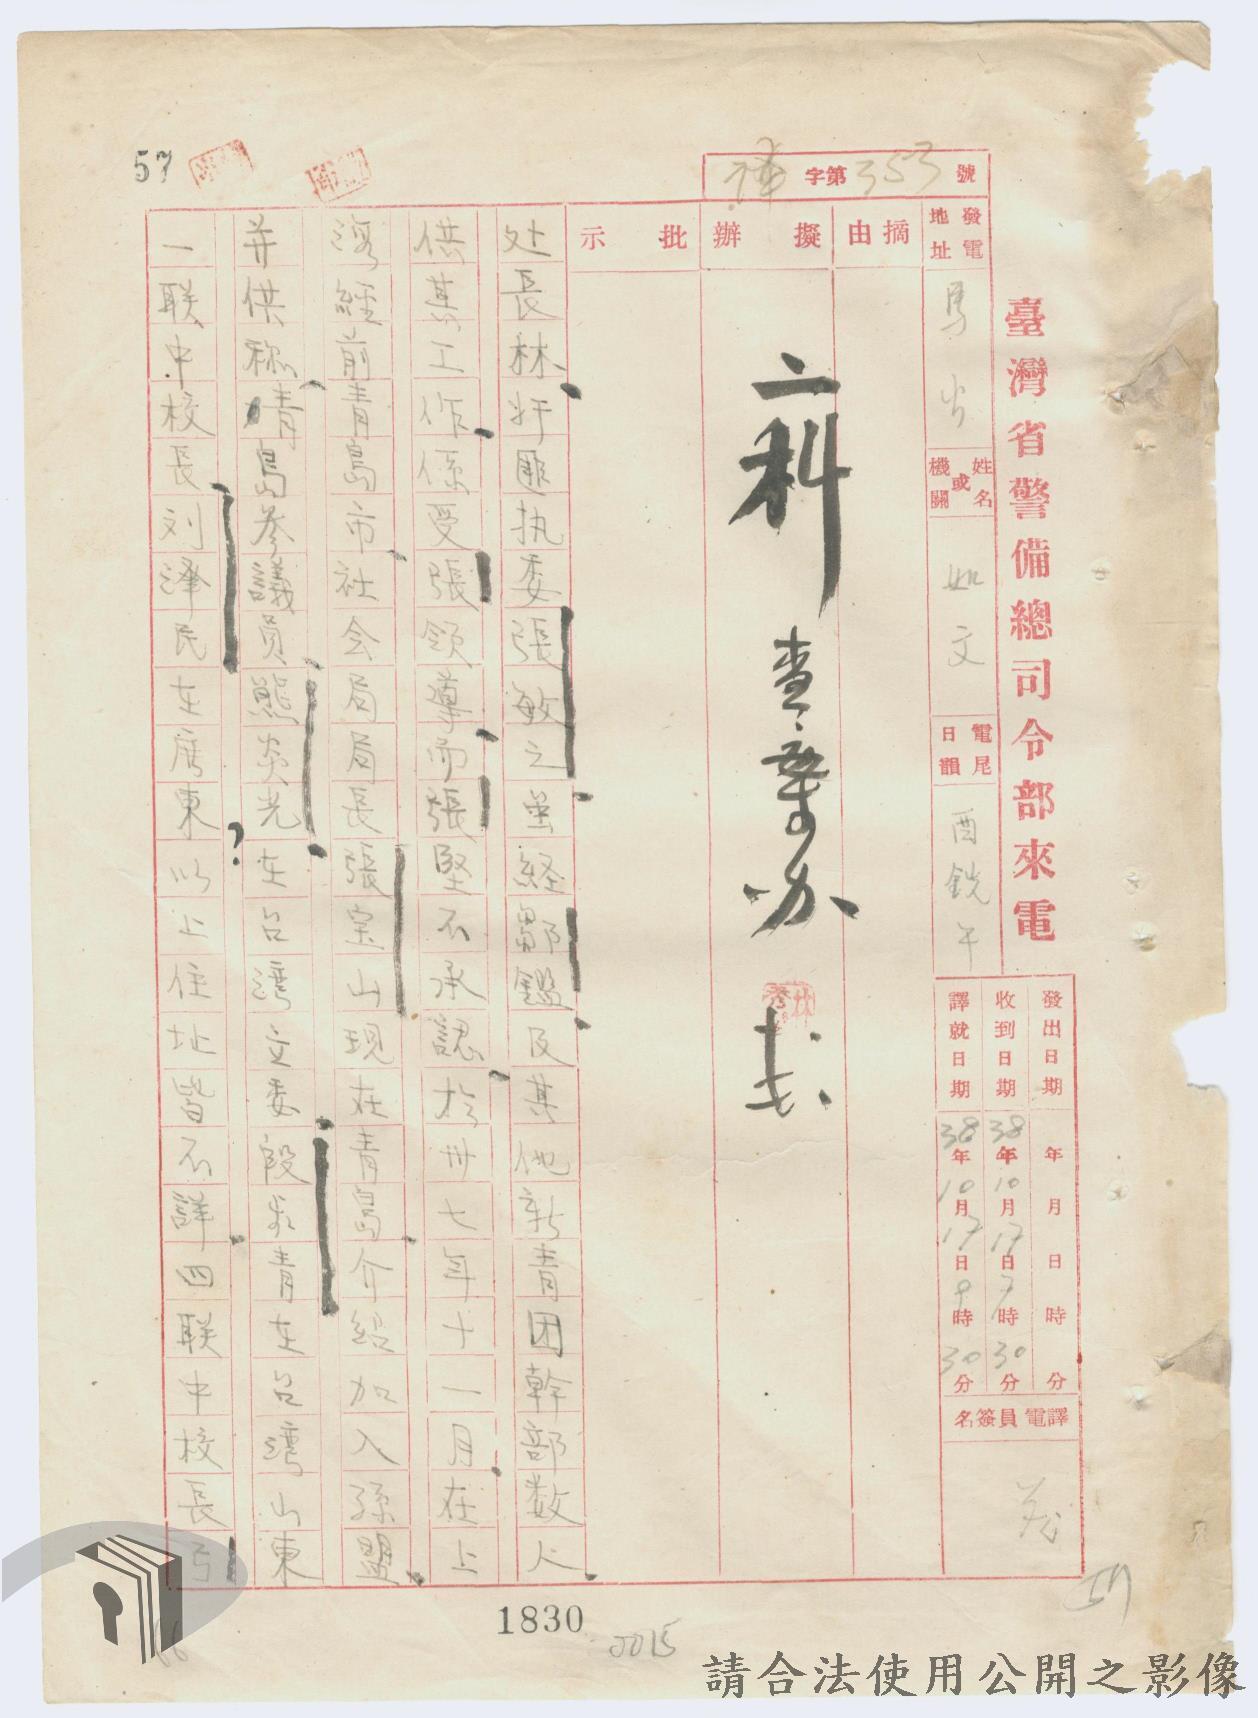 臺灣省警備總司令部來電
字第353號
發電地址
馬公
姓名或機關
如文
電尾日韻
酉銑午
發出日期 年 月 日 時 分
收到日期 38年10月17日7時30分
譯就日期 38年10月17日9時30分
譯電員簽名
摘由
擬辦
批示
二科
查案办
处長林奸匪执委張敏之並経鄒鑑及其他新青团幹部数人
供其工作係受張領導而張堅不承認於卅七年十一月在上
海經前青島市社会局局長張宝山現在青島介紹加入孫盟
并供称青島參議員熊炎光在台湾立委段永青在台湾山東
一联中校長刘澤民在廣東以上住址皆不詳四联中校長弓
57
1830
2015
66
請合法使用公開之影像